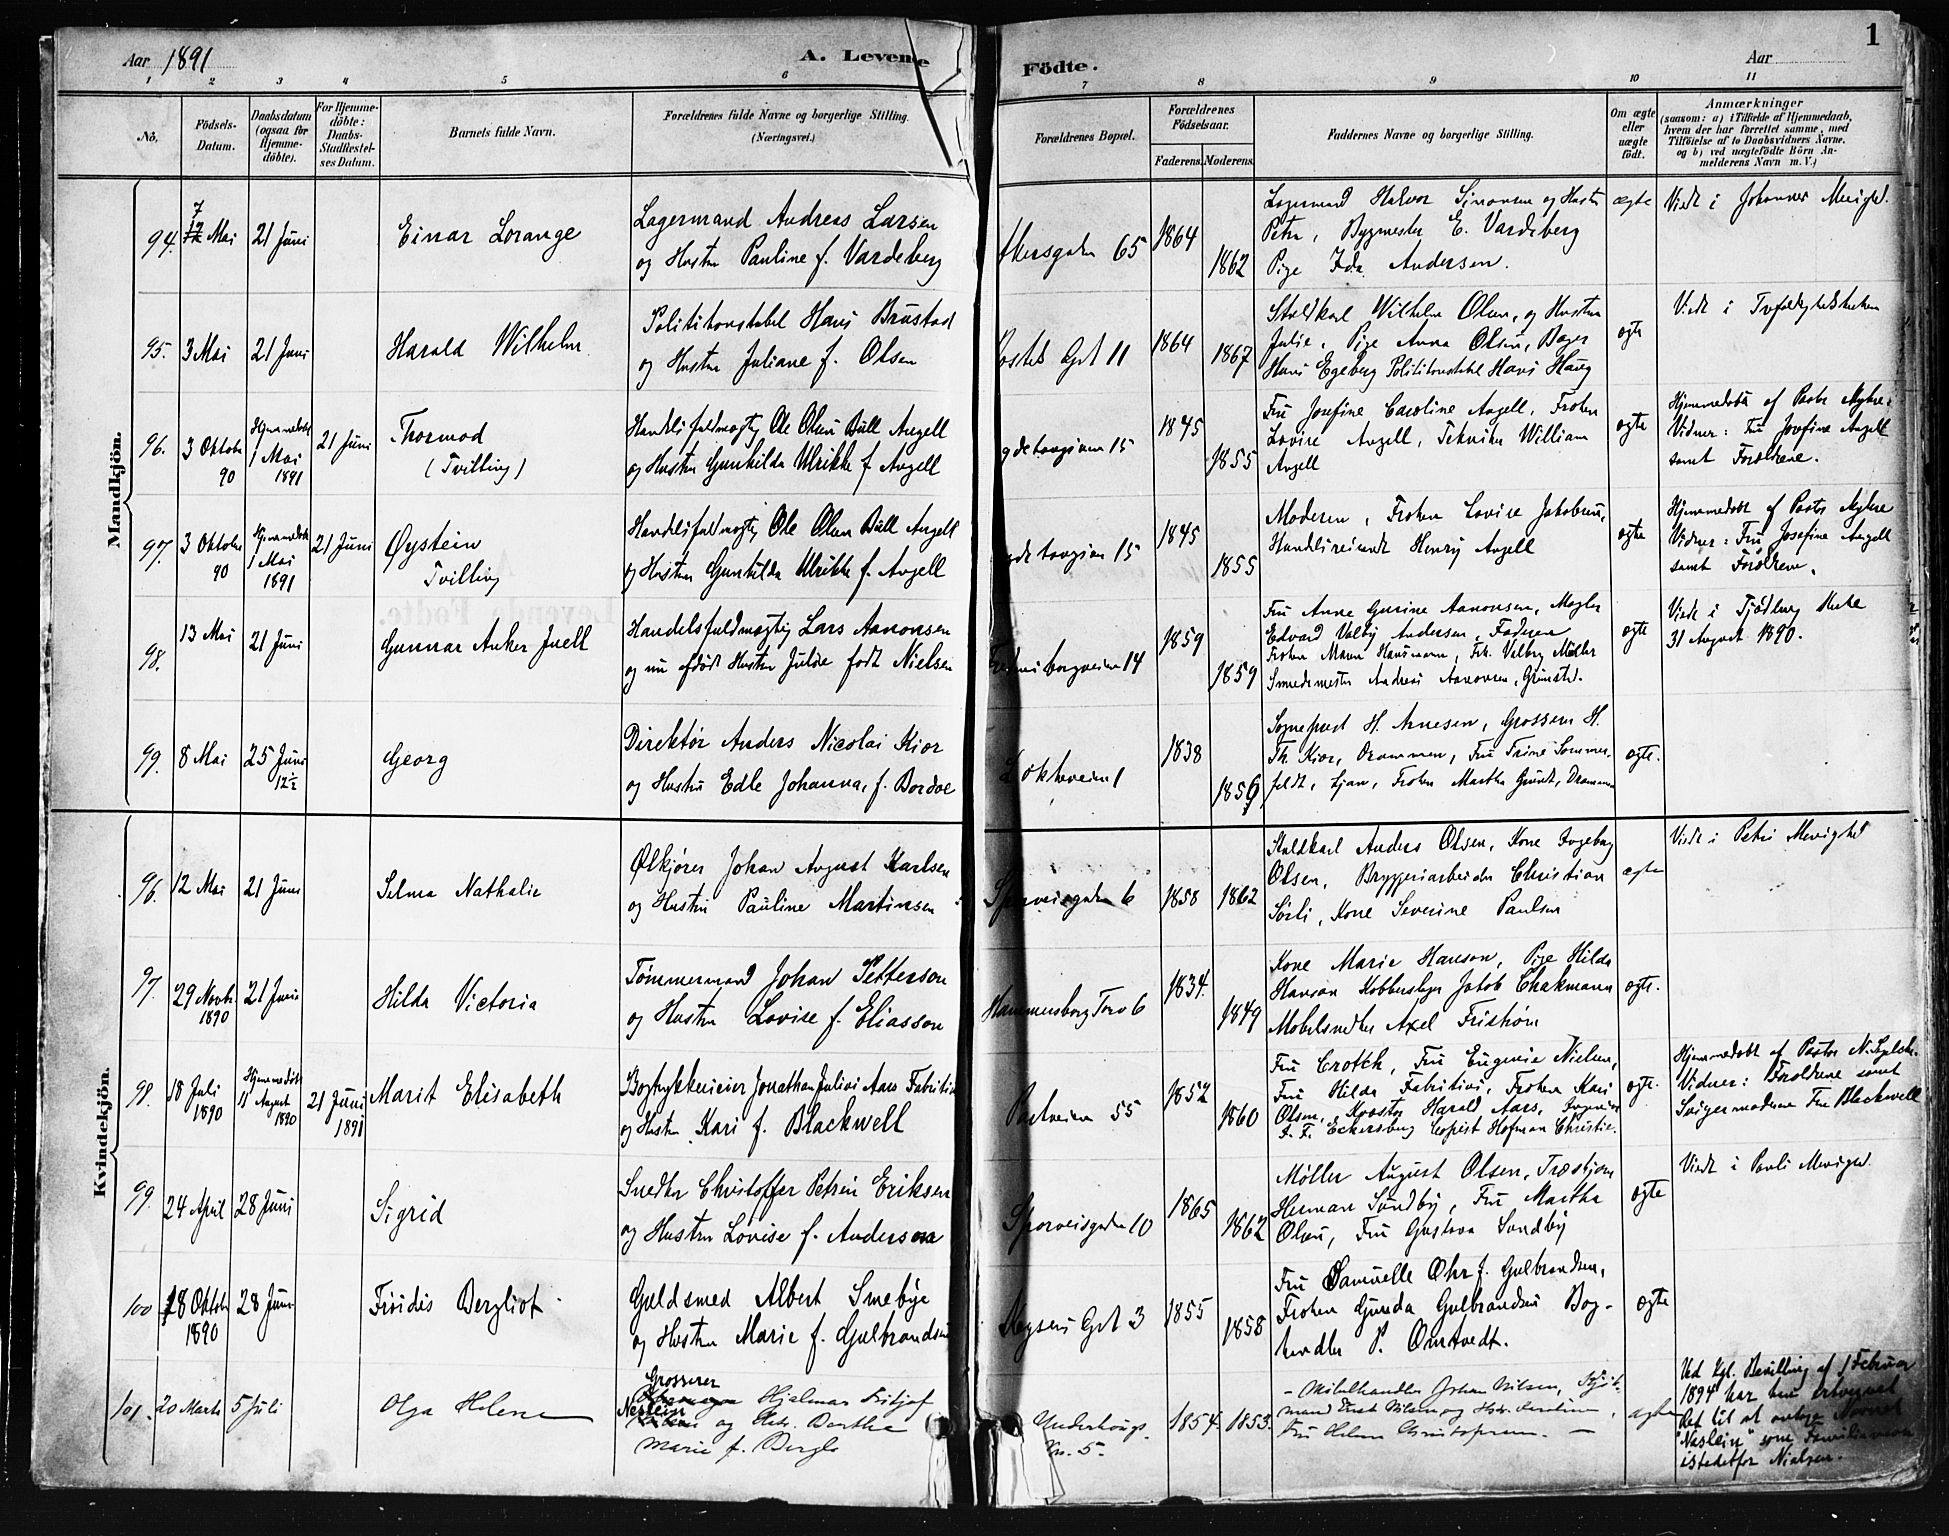 Aar 1891
A. Levende
Födte.
Aar
1
1 2 3 4 5 6 7 8 9 10 11
No.
Födsels-Datum.
Daabsdatum (ogsaa for Hjemme-döbte).
For Hjemme-döbte: Daabs-Stadfæstel-ses Datum.
Barnets fulde Navn.
Forældrenes fulde Navne og borgerlige Stilling.
(Næringsvei.)
Forældrenes Bopæl.
Forældrenes Födselsaar.
Faderens. Moderens.
Faddernes Navne og borgerlige Stilling.
Om ægte eller uægte födt.
Anmærkninger
(saasom: a) i Tilfælde af Hjemmedaab,
hvem der har forrettet samme, med
Tilföielse af to Daabsvidners Navne,
og b) ved uægtefödte Börn An-
melderens Navn m. V.)
Mandkjön.
94. 7 12 Mai 21 Juni Einar Lorange
Lagermand Andreas Larsen
og Hustru Pauline f. Vardeberg
Akersgaden 65 1864 1862
Lagermand Halvor Simonsen og Hustru
Petra, Bygmester E. Vardeberg
Pige Ida Andersen.
ægte
Viet i Johannes Menighd.
95. 3 Mai 21 Juni Harald Wilhelm
Politikonstabel Hans Brustad
og Hustru Juliane f. Olsen
Gdt 11 1864 1867
Staldkarl Wilhelm Olsen, og Hustru
Julie, Pige Anna Olsen, Bager
Hans Egeberg Politikonstabel Hans Haug
ægte
Viet i Trefoldighedskirken
96. 3 Oktober 90 Hjemmedøbt 1 Mai 1891 21 Juni Thormod
(Tvilling)
Handelsfuldmægtig Ole Olsen Bull Angell
og Hustru Gunhilda Ulrikke f. Angell
15 1845 1855
Fru Josefine Caroline Angell, Frøken
Lovise Angell, Tekniker William
Angell
ægte
Hjemmedøbt af Pastor
Vidner: Fru Josefine Angell
samt Forældrene.
97. 3 Oktober 90 Hjemmedøbt 1 Mai 1891 21 Juni Øystein
Tvilling
Handelsfuldmægtig Ole Olsen Bull Angell
og Hustru Gunhilda Ulrikke f. Angell
15 1845 1855
Moderen, Frøken Lovise Jakobsen,
Handelsreisende Henry Angell
ægte
Hjemmedøbt af Pastor
Vidner: Fru Josefine Angell
samt Forældrene.
98. 13 Mai 21 Juni Gunnar Anker Juell
Handelsfuldmægtig Lars Aanonsen
og nu afdød Hustru Julie født Nielsen
14 1859 1859
Fru Anne Gurine Aanonsen, Mægler
Edvard Valby Andersen, Faderen
Frøken Marie Hansmann, Frk. Valborg Møller
Smedemester Andreas Aanonsen, Grimstad.
ægte
Viet i Kirke
31 August 1890.
99. 8 Mai 25 Juni 12½ Georg
Direktør Anders Nicolai Kiær
og Hustru Edle Johanna, f. Bordoe
Løkkeveien 1 1838 1856
Sognepræst H. Arnesen, Grosserer H.
Th. Kiær, Drammen, Fru Trine Sommer-
feldt, Ljan, Frøken Martha Grundt, Drammen
ægte.
Kvindekjön.
96. 12 Mai 21 Juni Selma Nathalie
Ølkjører Johan August Karlsen
og Hustru Pauline Martinsen
Sporveisgaden 6 1858 1862
Staldkarl Anders Olsen, Kone Ingeborg
Olsen, Bryggeriarbeider Christian
Sørli, Kone Severine Paulsen
ægte
Viet i Petri Menighed
97. 29 Novbr 1890 21 Juni Hilda Victoria
Tømmermand Johan Petterson
og Hustru Lovise f. Eliasson
Hammersborg Torv 6 1834. 1849
Kone Marie Hanson, Pige Hilda
Hanson Kobberslager Jakob Chakmann
Møbelsnedker Axel Friström
ægte.
98. 18 Juli 1890 Hjemmedøbt 11 August 1890 21 Juni 1891 Marit Elisabeth
Bogtrykkerieier Jonathan Julius Aars Fabritius
og Hustru Kari f. Blackwell
Parkveien 55 1852 1860
Fru Crotch, Fru Eugenie Nielsen,
Fru Hilda Fabritius, Frøken Kari
Olsen, Kvæstor Harald Aars, Ingeniør
F. F. Eckersberg Copist Hofman Christie.
ægte.
Hjemmedøbt af Pastor
Vidner: Forældrene samt
Svigermoderen Fru Blackwell
99. 24 April 28 Juni Sigrid
Snedker Christoffer Petrin Eriksen
og Hustru Lovise f. Anderson
Sporveisgaden 10 1865 1862
Møller August Olsen,
Herman Sundby, Fru Martha
Olsen, Fru Gustava Sundby
ægte
Viet i Pauli Menighed.
100 18 Oktober 1890 28 Juni Fridis Bergliot
Guldsmed Albert Smebye
og Hustru Marie f. Gulbrandsen
Gdt 3 1855 1858
Fru Samuelle Ohr f. Gulbrandsen,
Frøken Gunda Gulbrandsen Bog-
handler P. Omtvedt.
ægte
101. 20 Marts 5 Juli Olga Helene
Grosserer
Hjalmar Fritjof
Næslein og Hstr. Berthe
Marie f. Bergh
Underhougs-
vn. 5. 1854. 1853.
- Møbelhandler Johan Nilsen,
Fru Helene Christophersen. -
ægte
Ved Kgl. Bevilling af 1 Februar
1894 har han erhvervet
Ret til at antage Navnet
"Næslein" som Familienavn
istedetfor Nielsen.